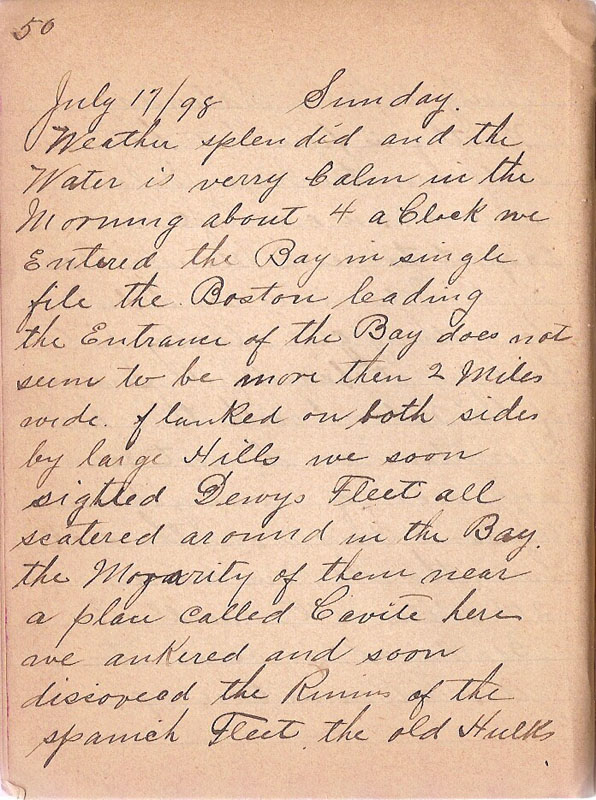 50
July 17/98 Sunday.
Weather splendid and the
Water is verry Calm in the
Morning about 4 a Clock we
Entered the Bay in single
file the Boston leading
the Entrance of the Bay does not
seem to be more then 2 Miles
wide. flanked on both sides
by large Hills we soon
sighted Dewys Fleet all
scatered around in the Bay.
the Mogarity of them near
a place called Cavite here
we ankered and soon
discovead the Ruins of the
spanich Fleet the old Hulks